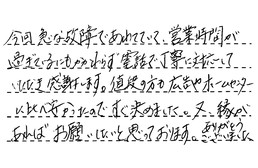 今回急な故障であわてていて、営業時間が
過ぎているにもかかわらず電話で丁寧に対応して
いただき感謝します。値段の方も広告やホームセンター
に比べ安かったのですぐ決めました。又、縁が
あればお願いしたいと思っております。ありがとう
ございました